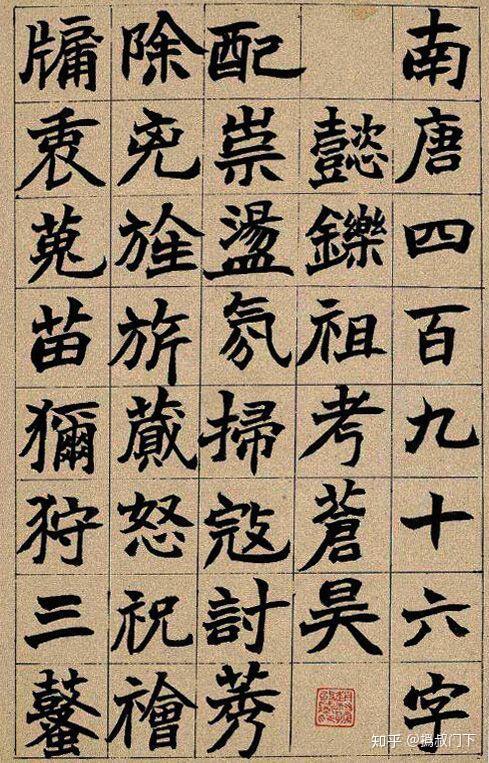 南唐四百九十六字
懿鑠祖考蒼昊
配崇盪氛掃寇討莠
除兇旌旂蕆怒祝禬
牖衷蒐苗獮狩三鼜
知乎 @撝叔门下